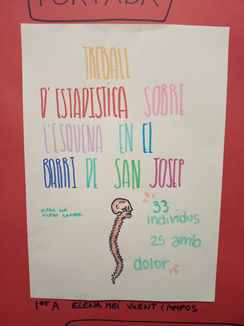 PORTADA
TREBALL
D'ESTADÍSTICA SOBRE
L'ESQUENA EN EL
BARRI DE SAN JOSEP
ELENA MEI
VICENT CAMPOS
33
individus
25 amb
dolor
1er A ELENA MEI VICENT CAMPOS